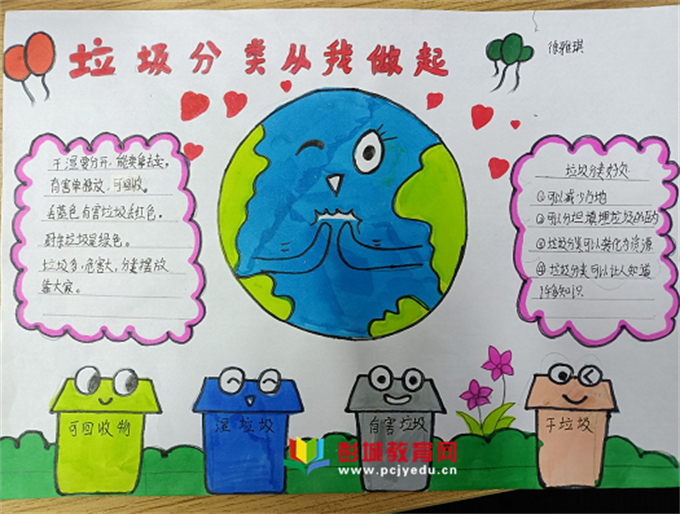 垃圾分类从我做起
徐雅琪
干湿要分开，能卖拿去卖，
有害单独放，可回收。
丢蓝色有害垃圾丢红色，
厨余垃圾是绿色。
垃圾多，危害大，分类摆放
靠大家。
垃圾分类好处
①可以减少占地
②可以分担填埋垃圾的
③垃圾分类可以转化为资源
④垃圾分类可以让人知道
许多知识
可回收物
湿垃圾
有害垃圾
干垃圾
彭城教育网
www.pcjyedu.cn